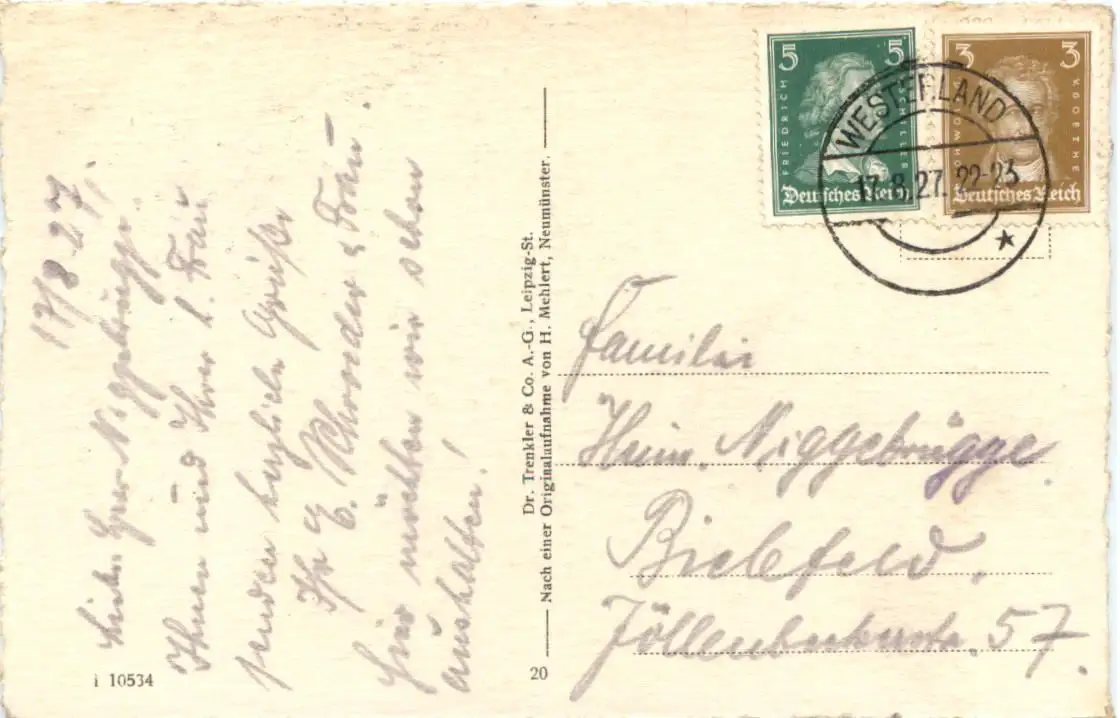 17/8. 27.
Lieber Herr Niggebrügge!
Ihnen und Ihrer l. Frau
senden herzliche Grüße
Ihr E. Schroeder & Frau.
Hier möchten wir schon
aushalten!
I 10534
Dr. Trenkler & Co. A.-G., Leipzig-St.
Nach einer Originalaufnahme von H. Mehlert, Neumünster.
20
5 5
FRIEDRICH SCHILLER
Deutsches Reich
3 3
JOH WOLFG V GOETHE
Deutsches Reich
WESTERLAND
17.8.27. 22-23
Familie
Heinr. Niggebrügge
Bielefeld.
Jöllenbeckerstr. 57.